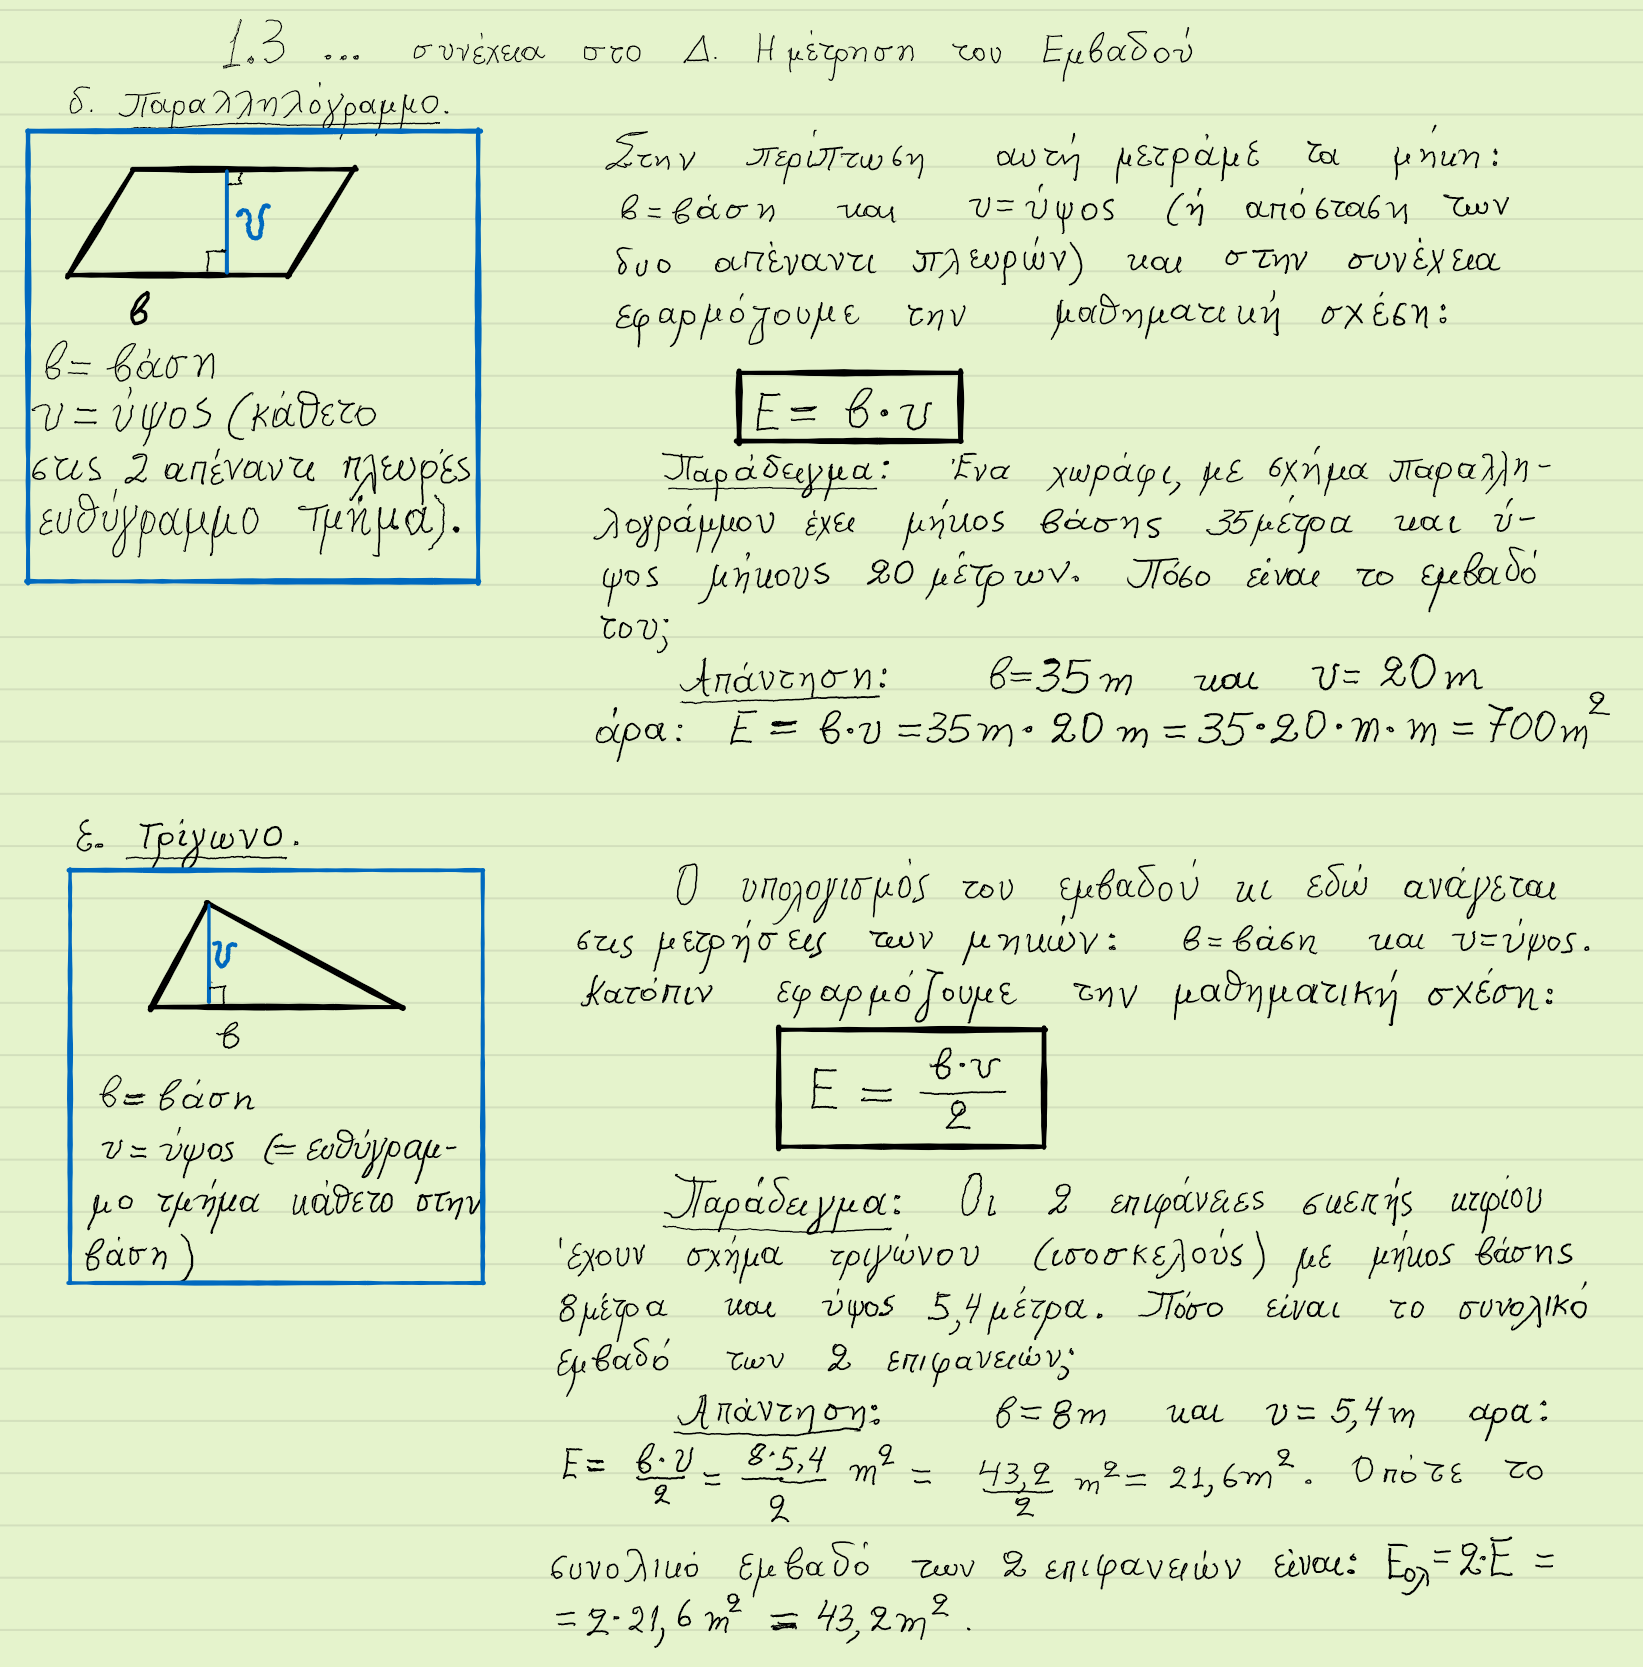 1.3 ... συνέχεια στο Δ. Η μέτρηση του Εμβαδού
δ. Παραλληλόγραμμο.
υ
β
β = βάση
υ = ύψος (κάθετο
στις 2 απέναντι πλευρές
ευθύγραμμο τμήμα).
Στην περίπτωση αυτή μετράμε τα μήκη:
β = βάση και υ = ύψος (ή απόσταση των
δυο απέναντι πλευρών) και στην συνέχεια
εφαρμόζουμε την μαθηματική σχέση:
Ε = β·υ
Παράδειγμα: Ένα χωράφι, με σχήμα παραλλη-
λογράμμου έχει μήκος βάσης 35 μέτρα και ύ-
ψος μήκους 20 μέτρων. Πόσο είναι το εμβαδό
του;
Απάντηση: β = 35 m και υ = 20 m
άρα: Ε = β·υ = 35 m · 20 m = 35·20·m·m = 700 m²
ε. Τρίγωνο.
υ
β
β = βάση
υ = ύψος (= ευθύγραμ-
μο τμήμα κάθετο στην
βάση)
Ο υπολογισμός του εμβαδού κι εδώ ανάγεται
στις μετρήσεις των μηκών: β = βάση και υ = ύψος.
Κατόπιν εφαρμόζουμε την μαθηματική σχέση:
Ε = β·υ/2
Παράδειγμα: Οι 2 επιφάνειες σκεπής κτιρίου
έχουν σχήμα τριγώνου (ισοσκελούς) με μήκος βάσης
8 μέτρα και ύψος 5,4 μέτρα. Πόσο είναι το συνολικό
εμβαδό των 2 επιφανειών;
Απάντηση: β = 8m και υ = 5,4 m αρα:
Ε = β·υ/2 = 8·5,4/2 m² = 43,2/2 m² = 21,6 m². Οπότε το
συνολικό εμβαδό των 2 επιφανειών είναι: Εολ = 2·Ε =
= 2·21,6 m² = 43,2 m².